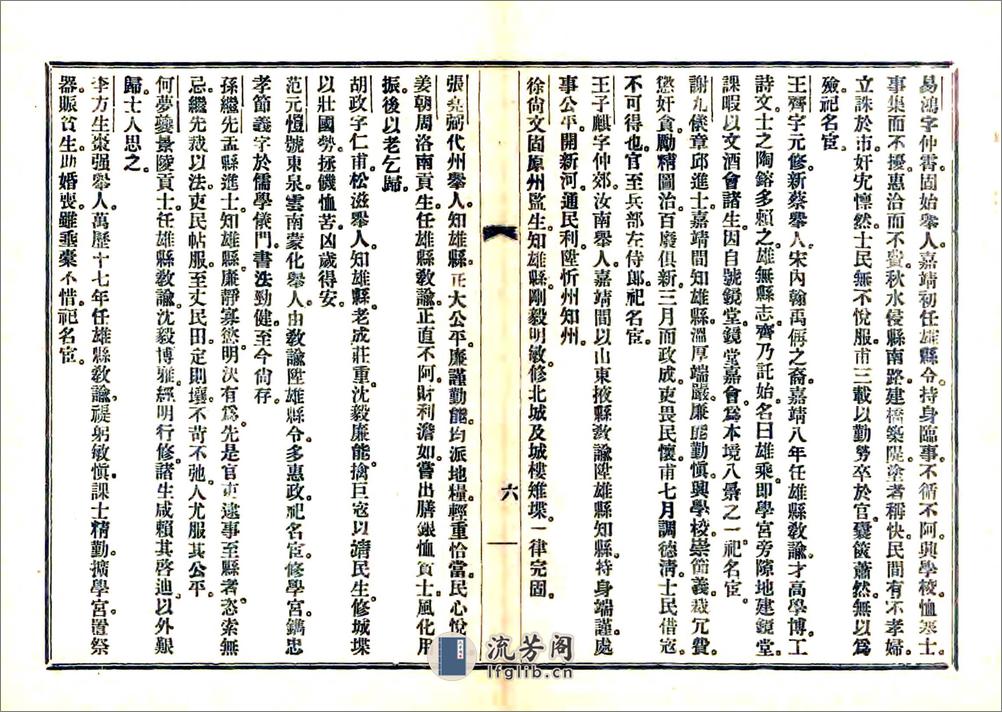 易鴻字仲香固始舉人嘉靖初任雄縣令持身臨事不循不阿興學校恤寒士
事集而不擾惠洽而不費秋水侵縣南路建橋築隄塗者稱快民間有不孝婦
立誅於市奸宄懍然士民無不悅服甫三載以勤勞卒於官囊篋蕭然無以爲
殮祀名宦
王齊字元修新蔡舉人宋內翰禹偁之裔嘉靖八年任雄縣敎諭才高學博工
詩文士之陶鎔多賴之雄無縣志齊乃託始名曰雄乘即學宮旁隙地建鏡堂
課暇以文酒會諸生因自號鏡堂鏡堂嘉會爲本境八景之一祀名宦
謝九儀章邱進士嘉靖間知雄縣溫厚端嚴廉能勤愼興學校崇節義裁冗費
懲奸貪勵精圖治百廢俱新三月而政成吏畏民懷甫七月調德清士民借寇
不可得也官至兵部左侍郎祀名宦
王子麒字仲郊汝南舉人嘉靖間以山東掖縣敎諭陞雄縣知縣持身端謹處
事公平開新河通民利陞忻州知州
徐尙文固原州監生知雄縣剛毅明敏修北城及城樓雉堞一律完固
六
張堯弼代州舉人知雄縣正大公平廉謹勤能均派地糧輕重恰當民心悅
姜朝周洛南貢生任雄縣敎諭正直不阿財利澹如嘗出膳銀恤貧士風化用
振後以老乞歸
胡政字仁甫松滋舉人知雄縣老成莊重沈毅廉能擒巨寇以靖民生修城堞
以壯國勢拯饑恤苦凶歲得安
范元愷號東泉雲南蒙化舉人由敎諭陞雄縣令多惠政祀名宦修學宮鐫忠
孝節義字於儒學儀門書法勁健至今尙存
孫繼先盂縣進士知雄縣廉靜寡慾明決有爲先是官吏逮事至縣者恣索無
忌繼先裁以法吏民帖服至丈民田定則壤不苛不弛人尤服其公平
何夢夔景陵貢士任雄縣敎諭沈毅博雅經明行修諸生咸賴其啓迪以外艱
歸士人思之
李方生棗强舉人萬歷十七年任雄縣敎諭禔躬敏愼課士精勤擴學宮置祭
器賑貧生助婚喪雖垂橐不惜祀名宦
流芳阁
lfglib.cn